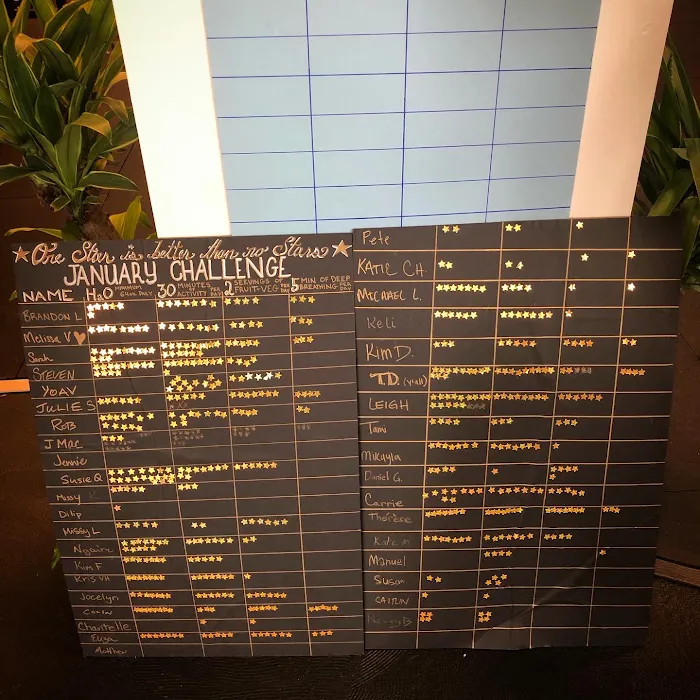 One Star is better than no Stars
JANUARY CHALLENGE
NAME
H2O MINIMUM 64oz DAILY
30 MINUTES ACTIVITY PER DAY
2 SERVINGS OF FRUIT-VEG PER DAY
5 MIN OF DEEP BREATHING PER DAY
BRANDON L
Melissa V
Sarah
STEVEN
YOAV
JULIE S
ROB
J MAC
Jennie
Susie Q
Missy K
Dilip
Missy L
Ngaire
Kim F
KRIS VH
Jocelyn
COLIN
Chantelle
Eliza
Matthew
Pete
KATIE CH.
MICHAEL L.
Keli
KIM D.
T.D. (y'all)
LEIGH
Tami
Mikayla
Daniel G.
Carrie
Thérèse
Katie M
Manuel
Susan
CAITLIN